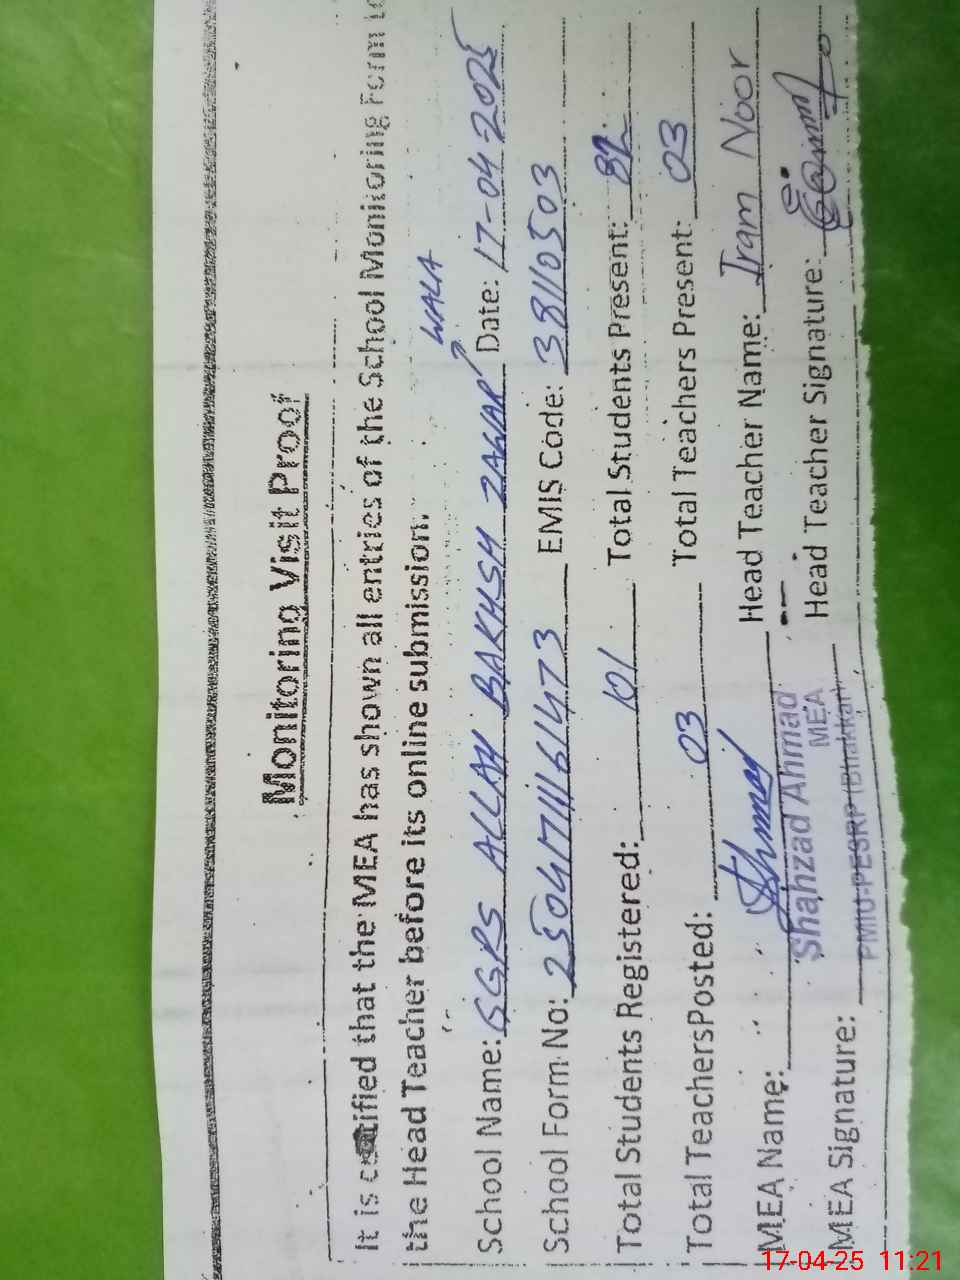 Monitoring Visit Proof
It is certified that the MEA has shown all entries of the School Monitoring Form to
the Head Teacher before its online submission.
School Name: GGPS ALLAH BAKHSH ZAWAR WALA Date: 17-04-2025
School Form No: 25041711161473 EMIS Code: 38110503
Total Students Registered: 101 Total Students Present: 82
Total TeachersPosted: 03 Total Teachers Present: 03
MEA Name: Head Teacher Name: Iram Noor
Shahzad Ahmad
MEA
PMIU-PESRP (Bhakkar)
MEA Signature: Head Teacher Signature:
17-04-25 11:21